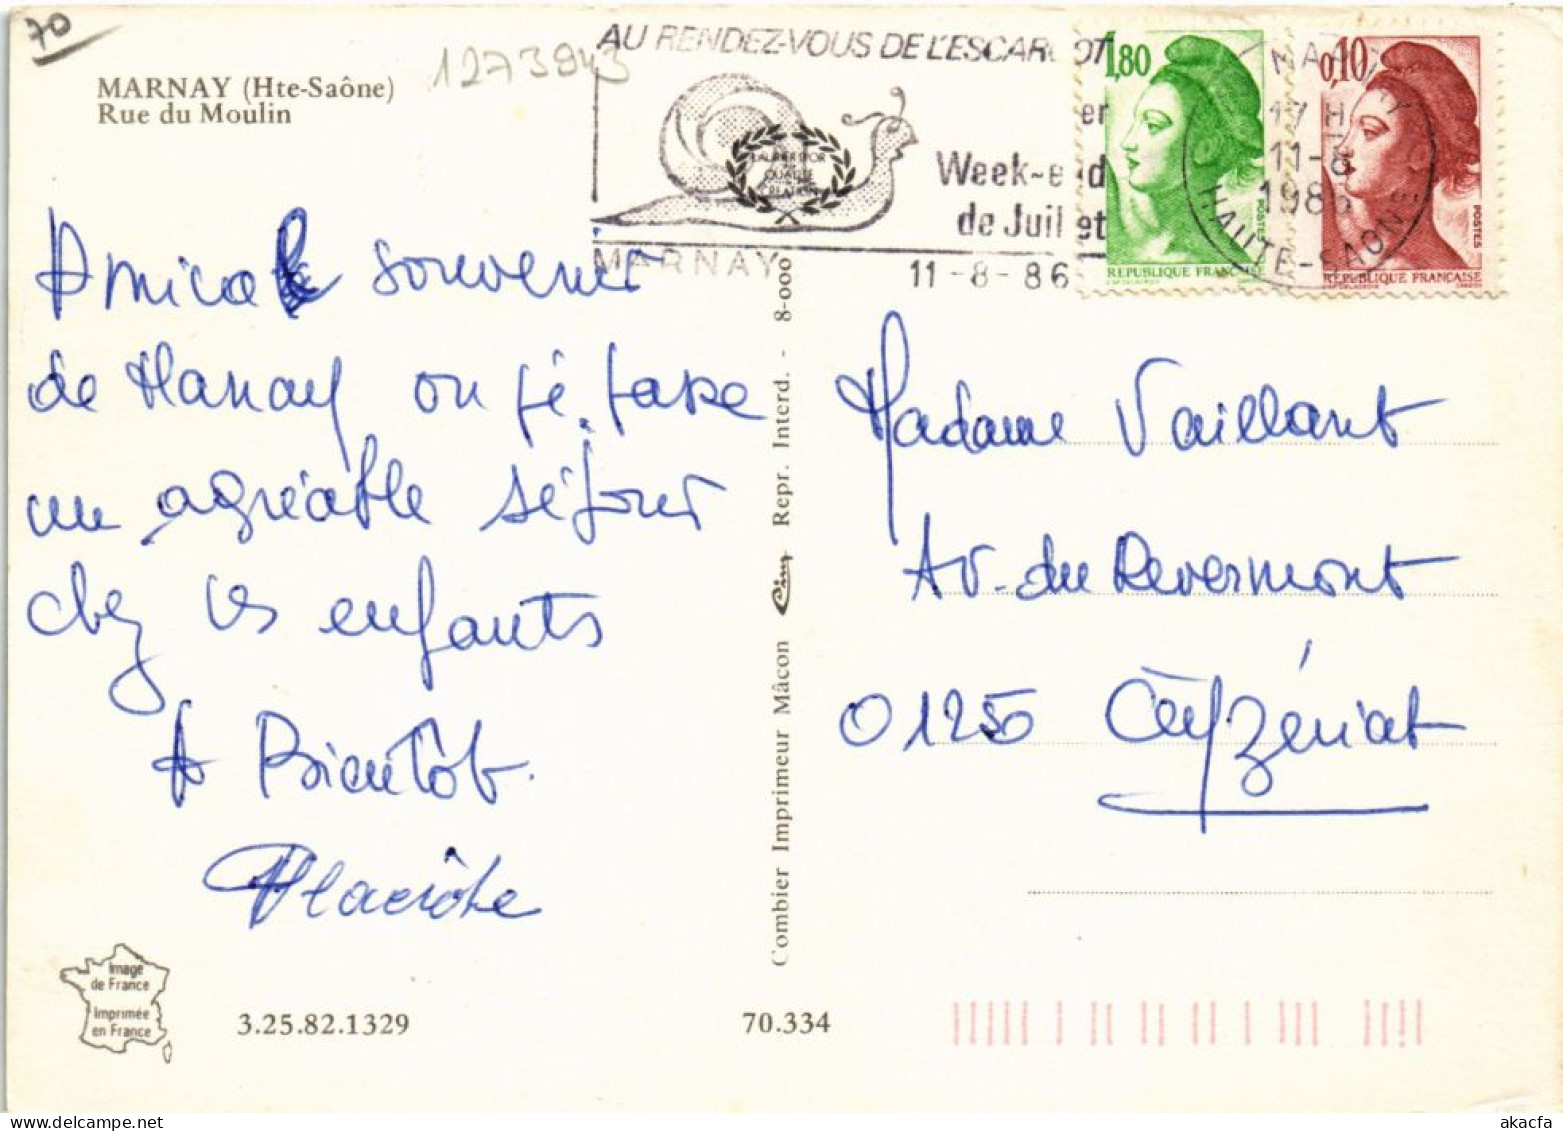 70
1273943
MARNAY (Hte-Saône)
Rue du Moulin
AU RENDEZ-VOUS DE L'ESCARGOT
er
Week-end
de Juillet
LAURIER D'OR
QUALITÉ
MARNAY
11-8-86
1,80
POSTES
REPUBLIQUE FRANÇAISE
0,10
POSTES
REPUBLIQUE FRANÇAISE
MARNAY
17 H
11-8
1986
HAUTE-SAONE
Amical souvenir
de Marnay ou je passe
un agréable séjour
chez les enfants
A Bientôt.
Madame Vaillant
Av. du Revermont
01250 Ceyzériat
Combier Imprimeur Mâcon Cim Repr. Interd. - 8-000
Image
de France
Imprimée
en France
3.25.82.1329
70.334
akacfa